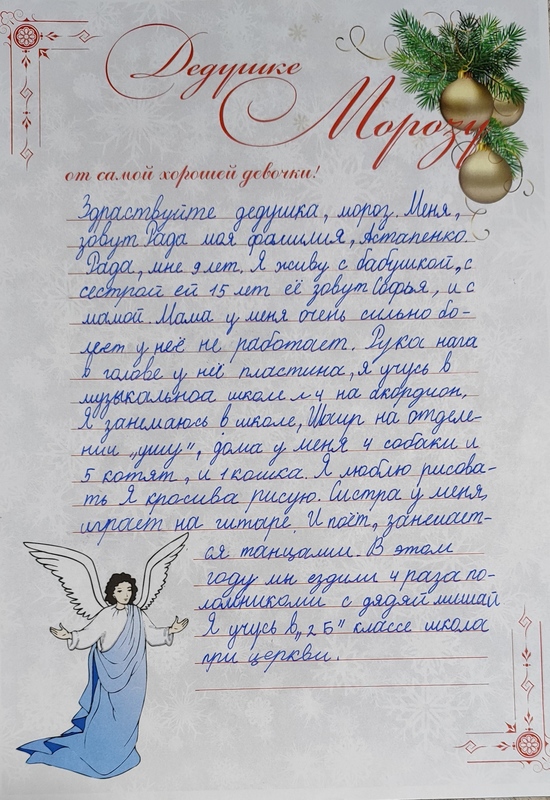 Дедушке
Морозу
от самой хорошей девочки!
Здраствуйте дедушка, мороз. Меня,
зовут Рада моя фамилия, Астапенко.
Рада, мне 9 лет. Я живу с бабушкой, с
сестрой ей 15 лет её зовут Софья, и с
мамой. Мама у меня очень сильно бо-
леет у неё не работает. Рука нага
в голове у неё пластина, я учусь в
музыкальноа школе л 4 на акордион,
Я занемаюсь в школе, Шаир на отделе-
нии „ушу", дома у меня 4 собаки и
5 котят, и 1 кошка. Я люблю рисова-
ть Я красива рисую. Систра у меня,
играет на гитаре. И поёт, занемает-
ся танцами. В этом
году мы ездили 4 раза по-
ломниками с дядяй мишай
Я учусь в „2 Б" классе школа
при церкви.